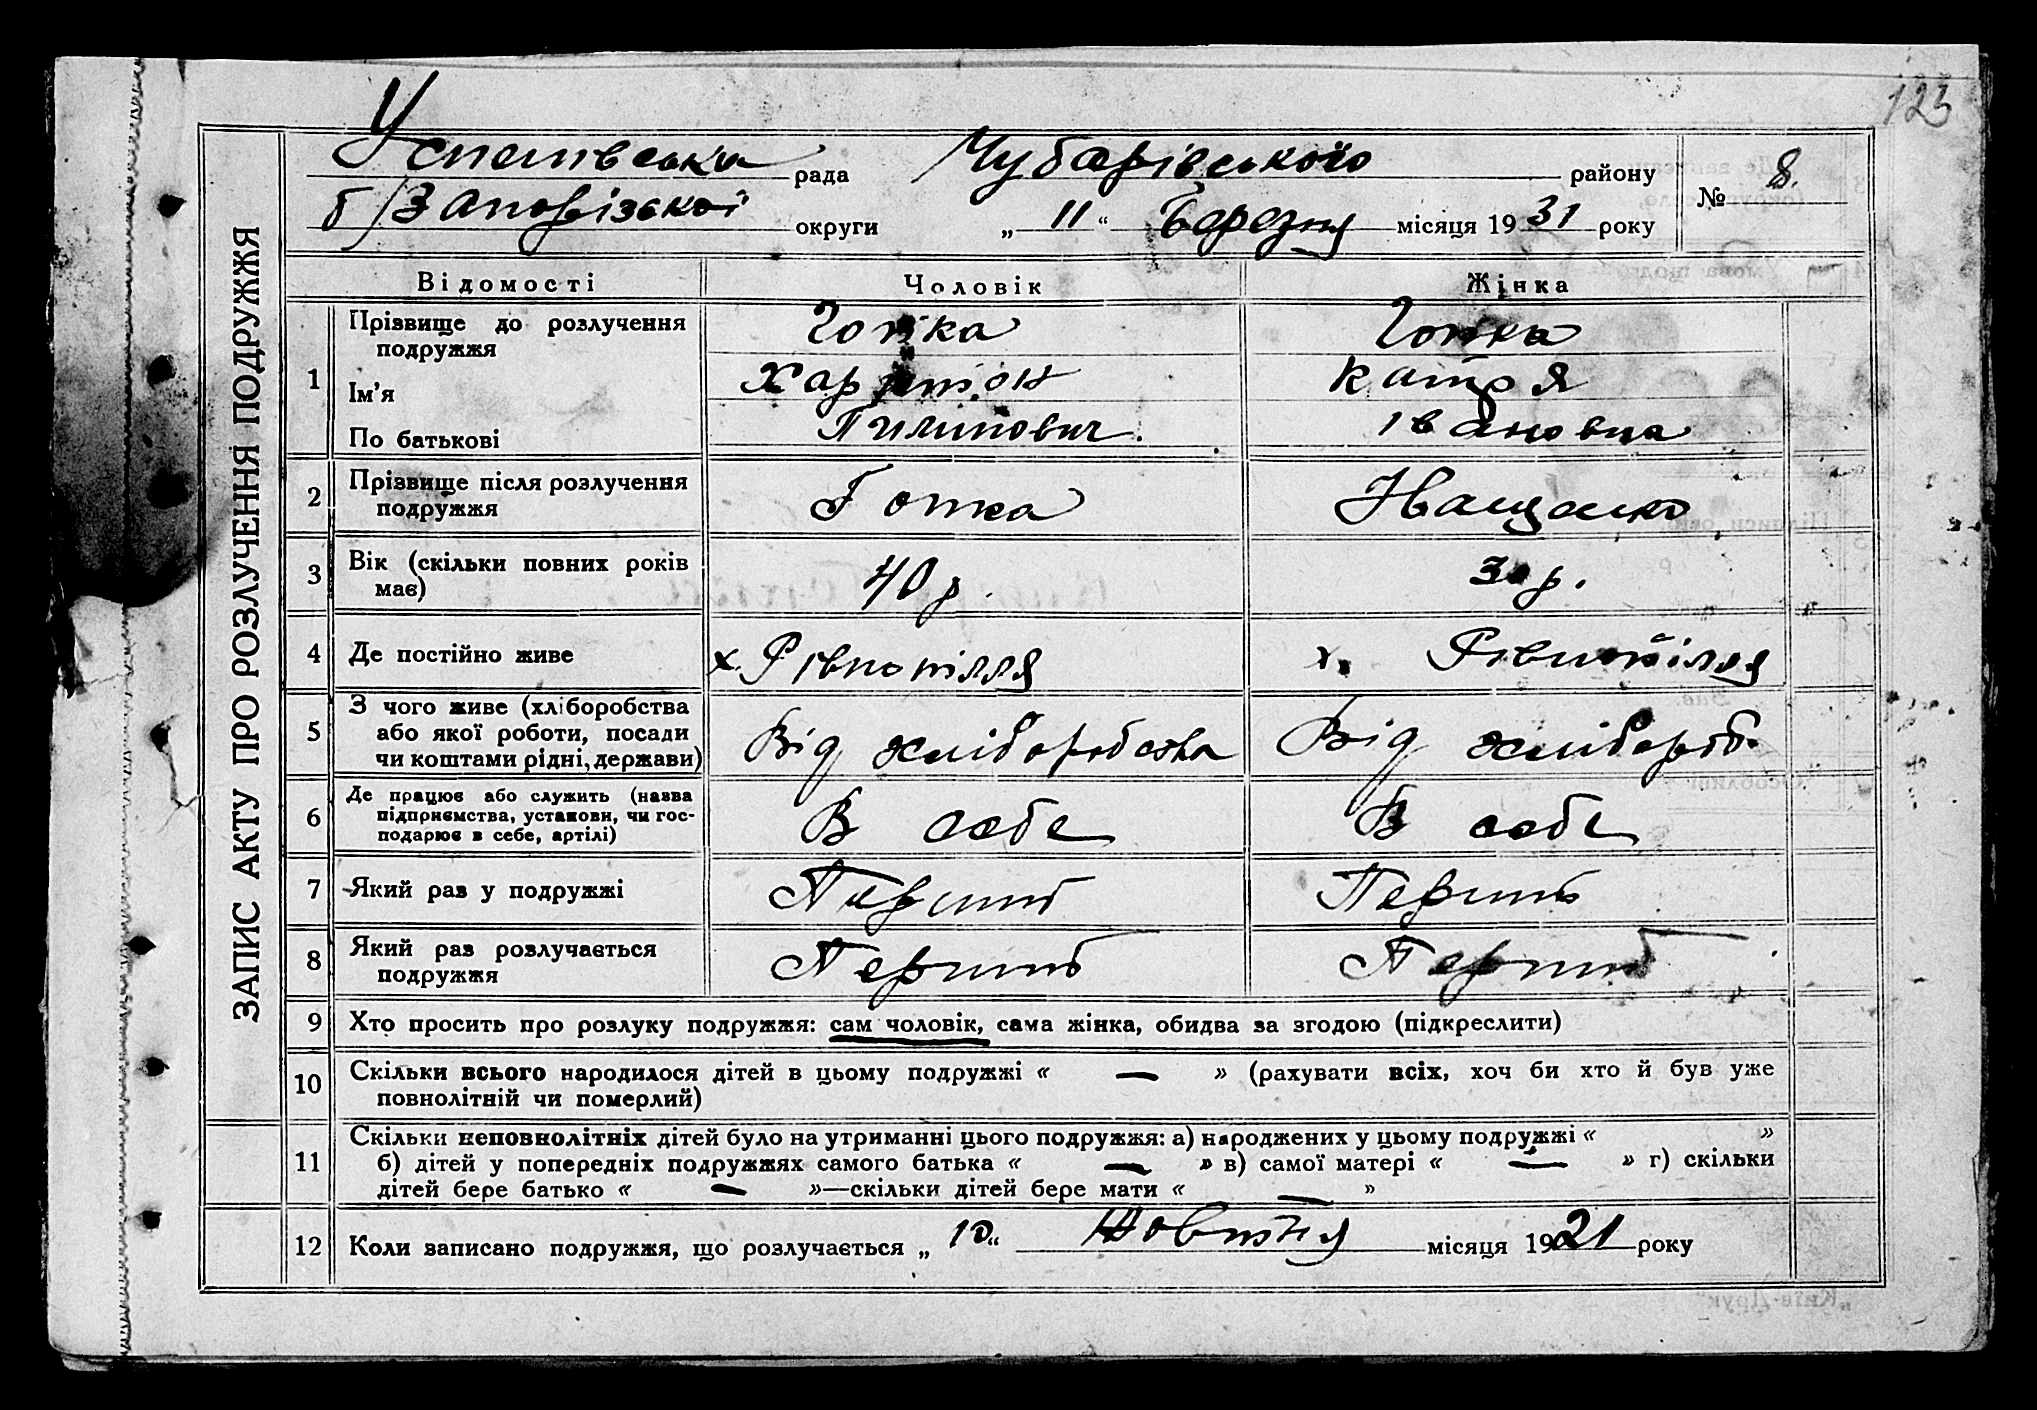 123
Успенівська рада Чубарівського району
№ 8.
б/Запорізької округи „ 11 “ Березня місяця 1931 року
ЗАПИС АКТУ ПРО РОЗЛУЧЕННЯ ПОДРУЖЖЯ
Відомості Чоловік Жінка
1 Прізвище до розлучення подружжя Гопка Гопка
Ім'я Харитон Катря
По батькові Пилипович. Івановна
2 Прізвище після розлучення подружжя Гопка
3 Вік (скільки повних років має) 40 р. 30 р.
4 Де постійно живе х. Рівнопілля х. Рівнопілля
5 З чого живе (хліборобства або якої роботи, посади чи коштами рідні, держави) Від хліборобства Від хлібороб.
6 Де працює або служить (назва підприємства, установи, чи господарює в себе, артілі) В себе В себе
7 Який раз у подружжі Перший Перший
8 Який раз розлучається подружжя Перший Перший
9 Хто просить про розлуку подружжя: сам чоловік, сама жінка, обидва за згодою (підкреслити)
10 Скільки всього народилося дітей в цьому подружжі « — » (рахувати всіх, хоч би хто й був уже
повнолітній чи померлий)
11 Скільки неповнолітніх дітей було на утриманні цього подружжя: а) народжених у цьому подружжі « »
б) дітей у попередніх подружжях самого батька « — » в) самої матері « — » г) скільки
дітей бере батько « — »—скільки дітей бере мати « — »
12 Коли записано подружжя, що розлучається „ 10 “ Жовтня місяця 1921 року